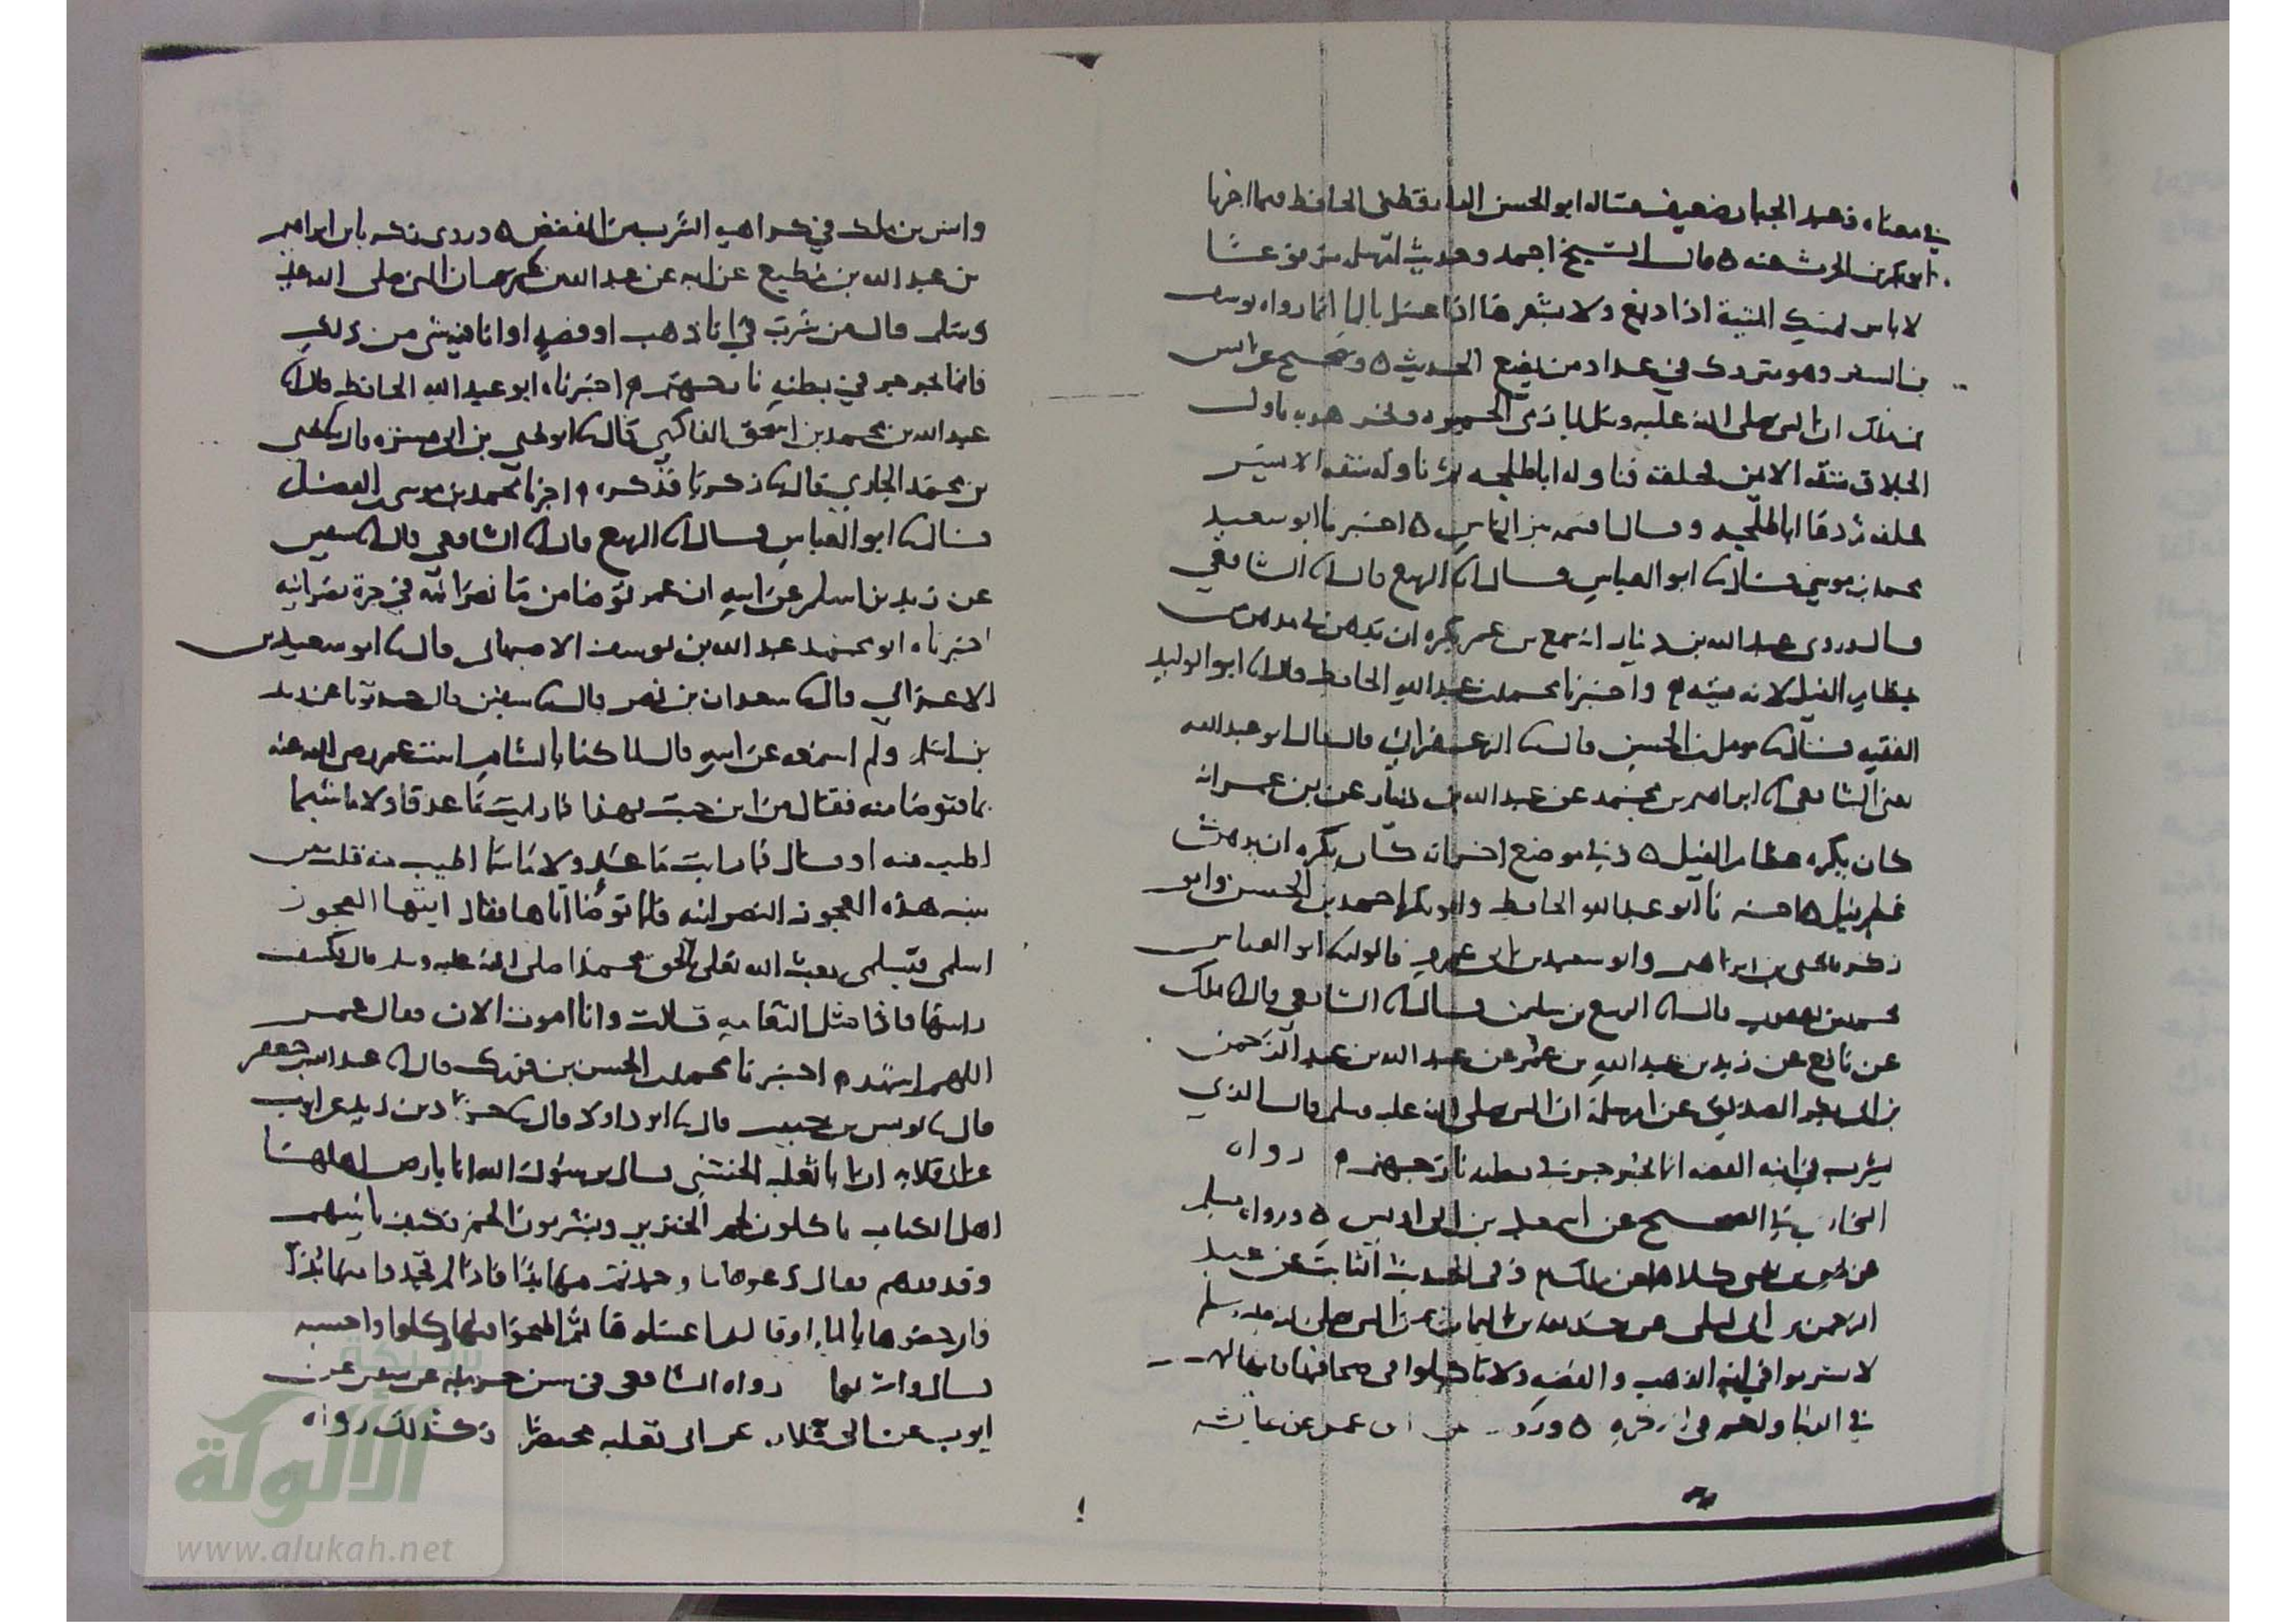 في معناه وعبد الجبار ضعيف قاله ابو الحسن الدارقطني الحافظ فيما اخبرنا
ابو بكر بن الحرث عنه ه قال الشيخ احمد وحديث ام سلمة مرفوعًا
لا باس بمسك الميتة اذا دبغ ولا بشعرها اذا غسل بالما انما رواه يوسف
بن السفر وهو متروك في عداد من يضع الحديث ه وصحيح عن انس
بن ملك ان النبي صلى الله عليه وسلم لما رمى الجمرة ونحر هديه ناول
الحلاق شقه الايمن فحلقه فناوله ابا طلحه ثم ناوله شقه الايسر
فحلقه ثم دعا ابا طلحه وقال اقسمه بين الناس ه اخبرنا ابو سعيد
محمد بن موسى قال ابو العباس قال انا الربيع قال انا الشافعي
قال وروى عبد الله بن دينار انه سمع بن عمر يكره ان يدهن في مدهن من
عظام الفيل لانه ميته ه واخبرنا محمد بن عبد الله الحافظ قال انا ابو الوليد
الفقيه قال مومل بن الحسن قال الزعفراني قال قال ابو عبد الله
يعني الشافعي انا ابراهيم بن محمد عن عبد الله بن دينار عن بن عمر انه
كان يكره عظام الفيل ه وفي موضع اخر انه كان يكره ان يدهن
عظم فيل ه اخبرنا ابو عبد الله الحافظ وابو بكر احمد بن الحسن وابو
زكريا يحيى بن ابراهيم وابو سعيد بن ابي عمرو قالوا ابو العباس
محمد بن يعقوب قال انا الربيع بن سليمن قال انا الشافعي قال انا ملك
عن نافع عن زيد بن عبد الله بن عمر عن عبد الله بن عبد الرحمن
بن ابي بكر الصديق عن ام سلمة ان النبي صلى الله عليه وسلم قال الذي
يشرب في انية الفضه انما يجرجر في بطنه نار جهنم ه رواه
البخاري في الصحيح عن اسمعيل بن ابي اويس ه ورواه مسلم
عن يحيى بن يحيى كلاهما عن ملك ه وفي الحديث الثابت عن عبد
الرحمن بن ابي ليلى عن حذيفه بن اليمان عن النبي صلى الله عليه وسلم
لا تشربوا في انيه الذهب والفضه ولا تاكلوا في صحافها فانها لهم
في الدنيا ولكم في الاخره ه وروي بن عمر عن عايشه
وانس بن ملك في كراهية الشرب من المفضض ه وروى زكريا بن ابراهيم
بن عبد الله بن مطيع عن ابيه عن عبد الله بن عمر ان النبي صلى الله عليه
وسلم قال من شرب في انا ذهب او فضه او انا فيه شي من ذلك
فانما يجرجر في بطنه نار جهنم ه اخبرناه ابو عبد الله الحافظ قال انا
عبد الله بن محمد بن اسحق الفاكهي قال ابو يحيى بن ابي مسره قال يحيى
بن محمد الجاري قال زكريا فذكره ه اخبرنا محمد بن موسى بن الفضل
قال ابو العباس قال انا الربيع قال انا الشافعي قال انا سفين
عن زيد بن اسلم عن ابيه ان عمر توضا من ما نصرانيه في جرة نصرانيه
اخبرناه ابو محمد عبد الله بن يوسف الاصبهاني قال ابو سعيد بن
الاعرابي قال سعدان بن نصر قال سفين قال حدثونا عن زيد
بن اسلم ولم اسمعه عن ابيه قال لما كنا بالشام اتيت عمر رضي الله عنه
بما فتوضا منه فقال من اين جيت بهذا فما رايت ما عد قط ولا ما سما
اطيب منه او قال ما رايت ما عد ولا ما سما اطيب منه قلت من
بيت هذه العجوز النصرانيه فلما توضا اتاها فقال ايتها العجوز
اسلمي تسلمي بعث الله تعلى بالحق محمدا صلى الله عليه وسلم قال فكشفت
راسها فاذا مثل الثغامه قالت وانا اموت الان فقال عمر
اللهم اشهد ه اخبرنا محمد بن الحسن بن فورك قال انا عبد الله بن جعفر
قال يونس بن حبيب قال ابو داود قال حماد بن زيد عن ايوب
عن ابي قلابه ان ابا ثعلبه الخشني قال يرسول الله انا بارض اهلها
اهل الكتاب ياكلون لحم الخنزير ويشربون الخمر فكيف بانيتهم
وقدورهم فقال دعوها ما وجدتم منها بدًا فاذا لم تجدوا منها بدًا
فارحضوها بالما او قال اغسلوها ثم اطبخوا فيها وكلوا واحسبه
قال واشربوا رواه الشافعي في سنن حرمله عن سفين عن
ايوب عن ابي قلابه عن ابي ثعلبه مختصرا وكذلك رواه
شبكة
الألوكة
www.alukah.net